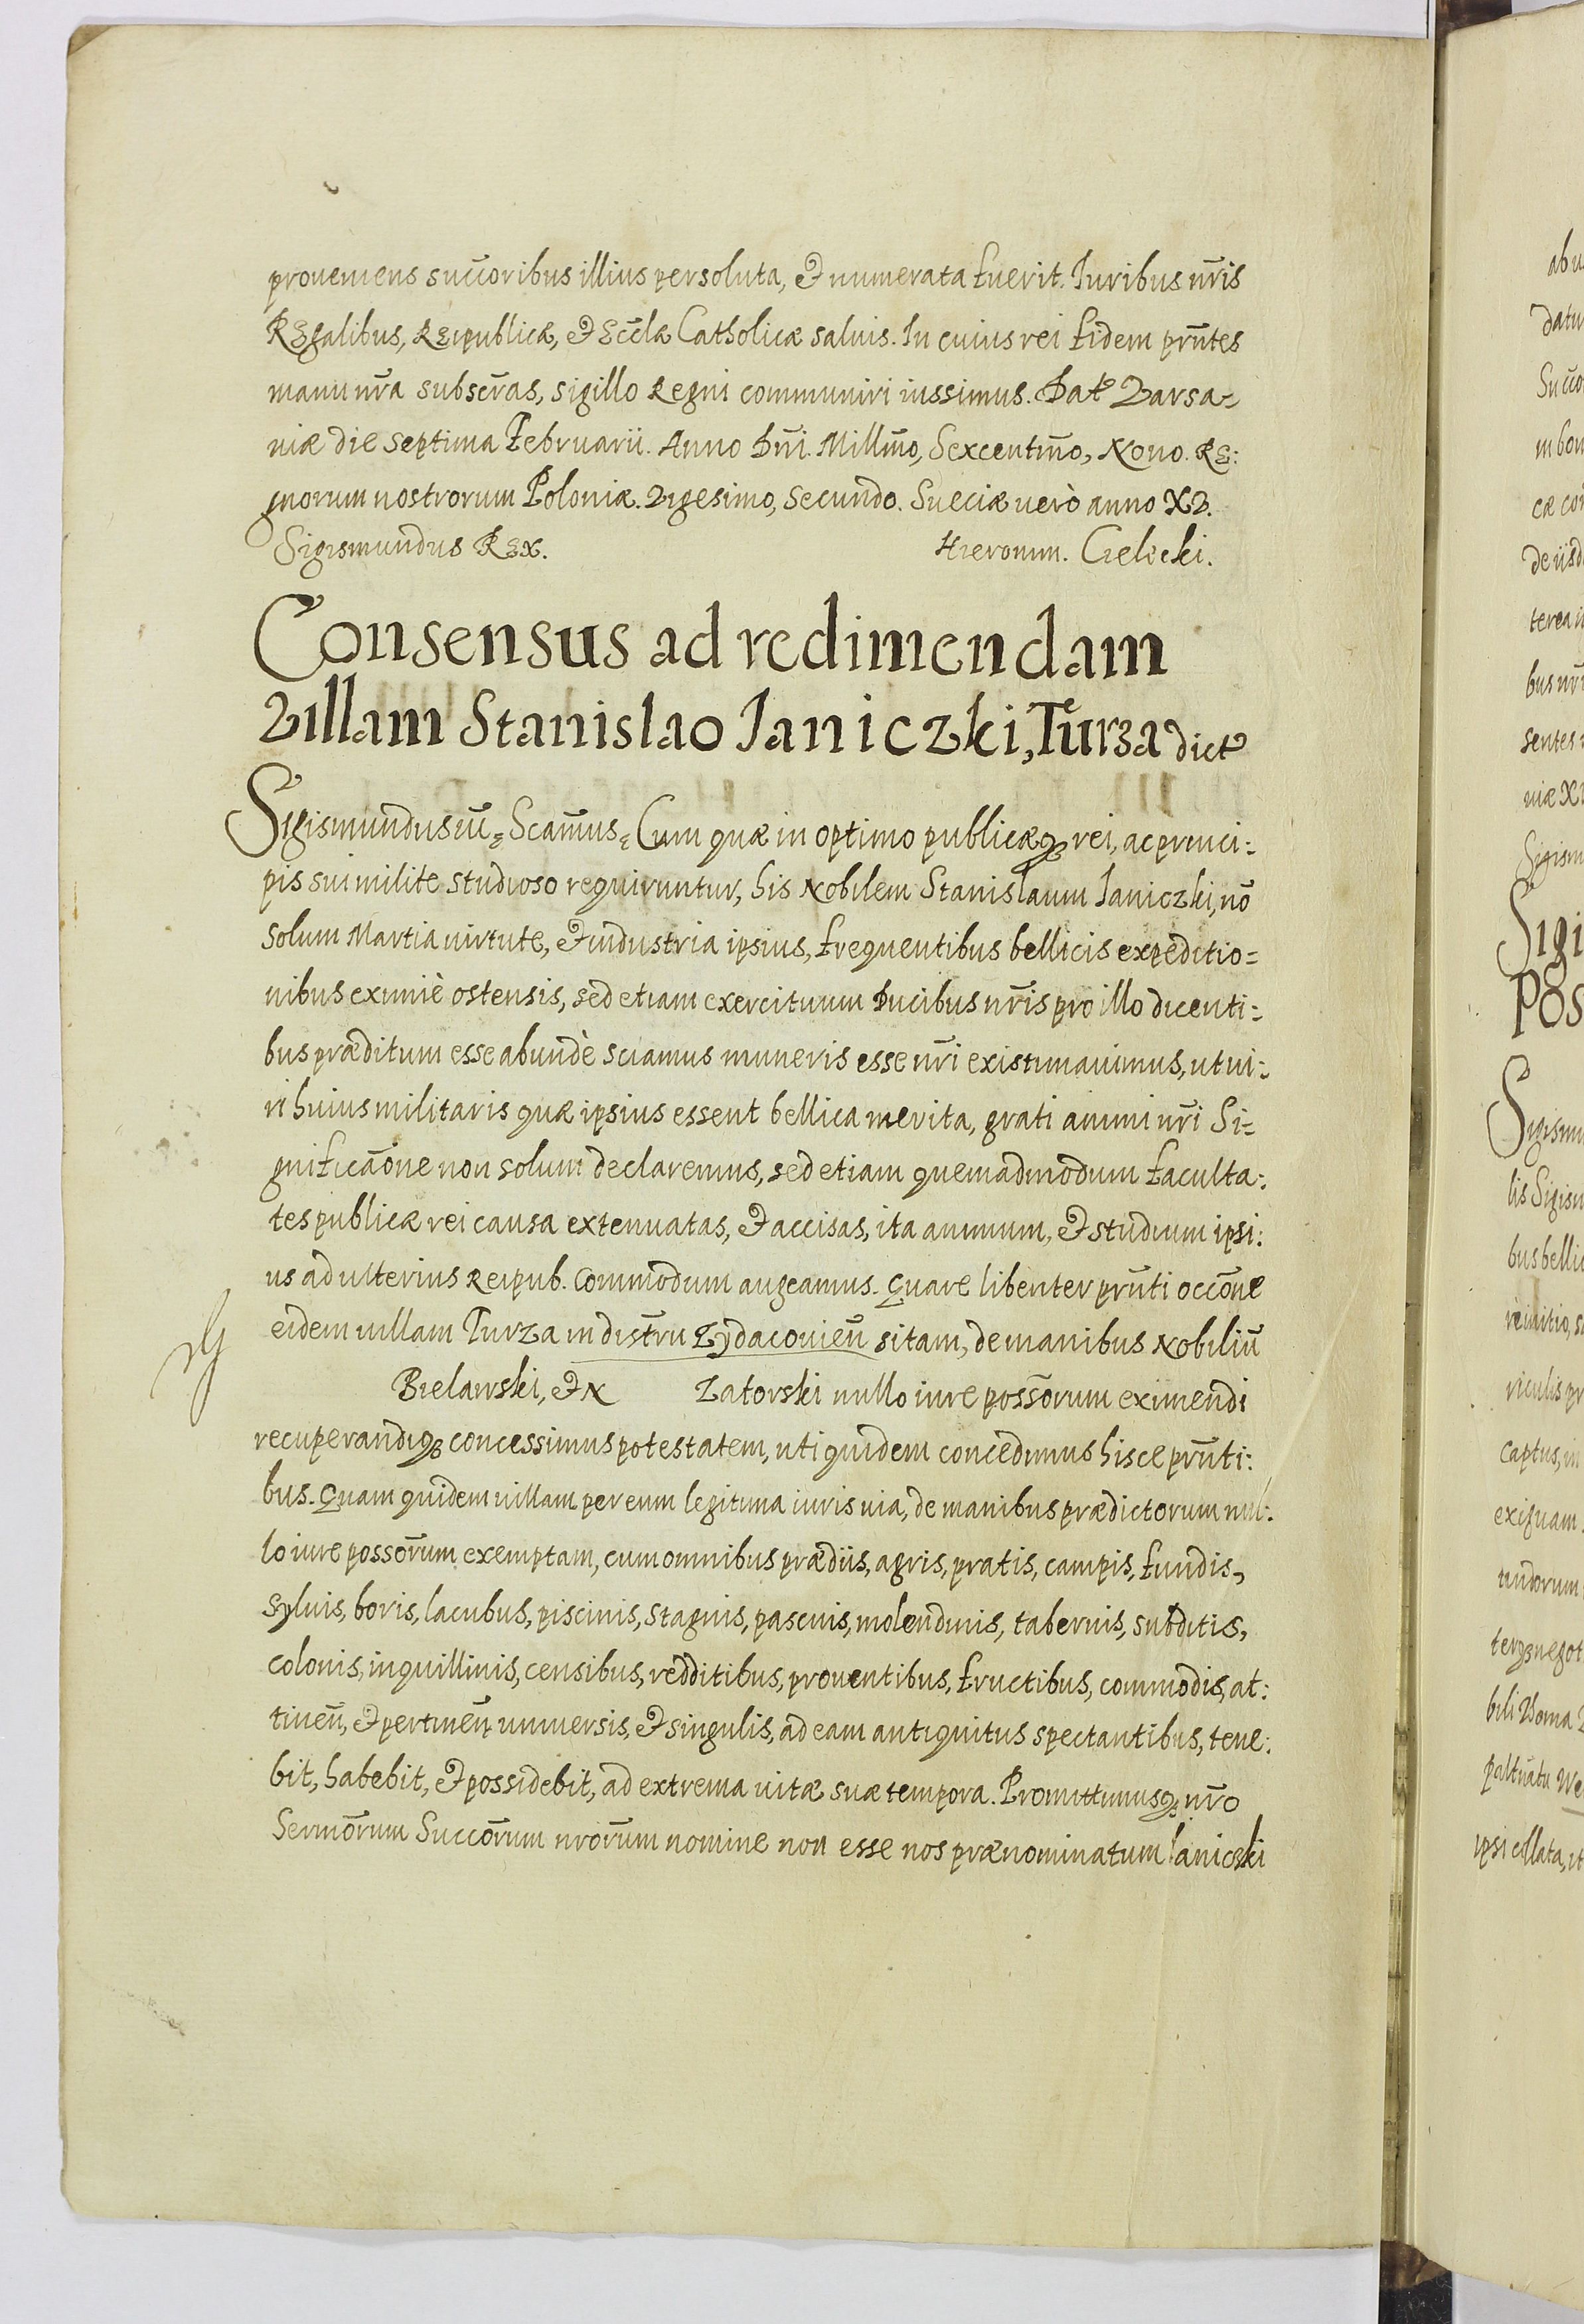 proueniens succoribus illius persoluta, et numerata fuerit. Iuribus nr̃is
Regalibus, Reipublicæ, et Eccl̃æ Catholicæ saluis. In cuius rei fidem prñtes
manu nr̃a subscr̃as, sigillo Regni communiri iussimus. Dat Varsa-
uiæ die septima Februarii. Anno Dñi. Millmõ, Sexcentmõ, Nono. Re:
gnorum nostrorum Poloniæ. Vigesimo, secundo. Sueciæ uerò anno XV.
Sigismundus Rex. Hieronim. Cielecki.
Consensus ad redimendam
Villam Stanislao Ianiczki, Turza dict
Sigismundus iũ = Scam̃us = Cum quæ in optimo publicæq3 rei, ac princi:
pis sui milite studioso requiruntur, his Nobilem Stanislaum Ianiczki, nõ
solum Martia uirtute, et industria ipsius, frequentibus bellicis expeditio=
nibus eximiè ostensis, sed etiam exercituum Ducibus nr̃is pro illo dicenti:
bus præditum esse abundè sciamus muneris esse nr̃i existimauimus, ut ui:
ri huius militaris quæ ipsius essent bellica merita, grati animi nr̃i Si=
gnificãone non solum declaremus, sed etiam quemadmodum faculta:
tes publicæ rei causa extenuatas, et accisas, ita animum, et studium ipsi:
us ad ulterius Reipub. Commodum augeamus. Quare libenter prñti occõne
eidem uillam Turza in distr̃u Zydacouieñ sitam, de manibus Nobiliũ
Bielawski, et N Zatorski nullo iure poss̃orum eximendi
recuperandiq3 concessimus potestatem, uti quidem concedimus hisce prñti:
bus. Quam quidem uillam per eum legitima iuris uia, de manibus prædictorum nul:
lo iure poss̃orum exemptam, cum omnibus prædiis, agris, pratis, campis, fundis,
syluis, boris, lacubus, piscinis, stagnis, pascuis, molendinis, tabernis, subditis,
colonis, inquillinis, censibus, redditibus, prouentibus, fructibus, commodis, at:
tineñ, et pertineñ uniuersis, et singulis, ad eam antiquitus spectantibus, tene:
bit, habebit, et possidebit, ad extrema uitæ suæ tempora. Promittimusq3 nr̃o
Sermõrum Succõrum nrõrum nomine non esse nos prænominatum Ianiczki